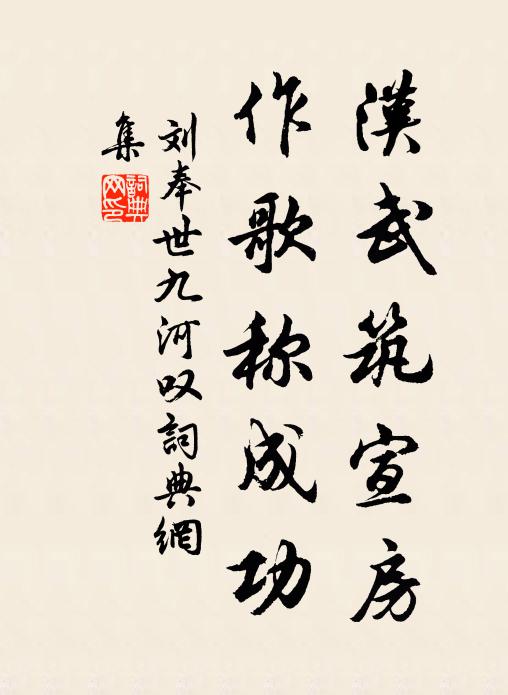 漢武筑宣房
作歌称成功
刘奉世九河叹詞典網
集
詞典
网印